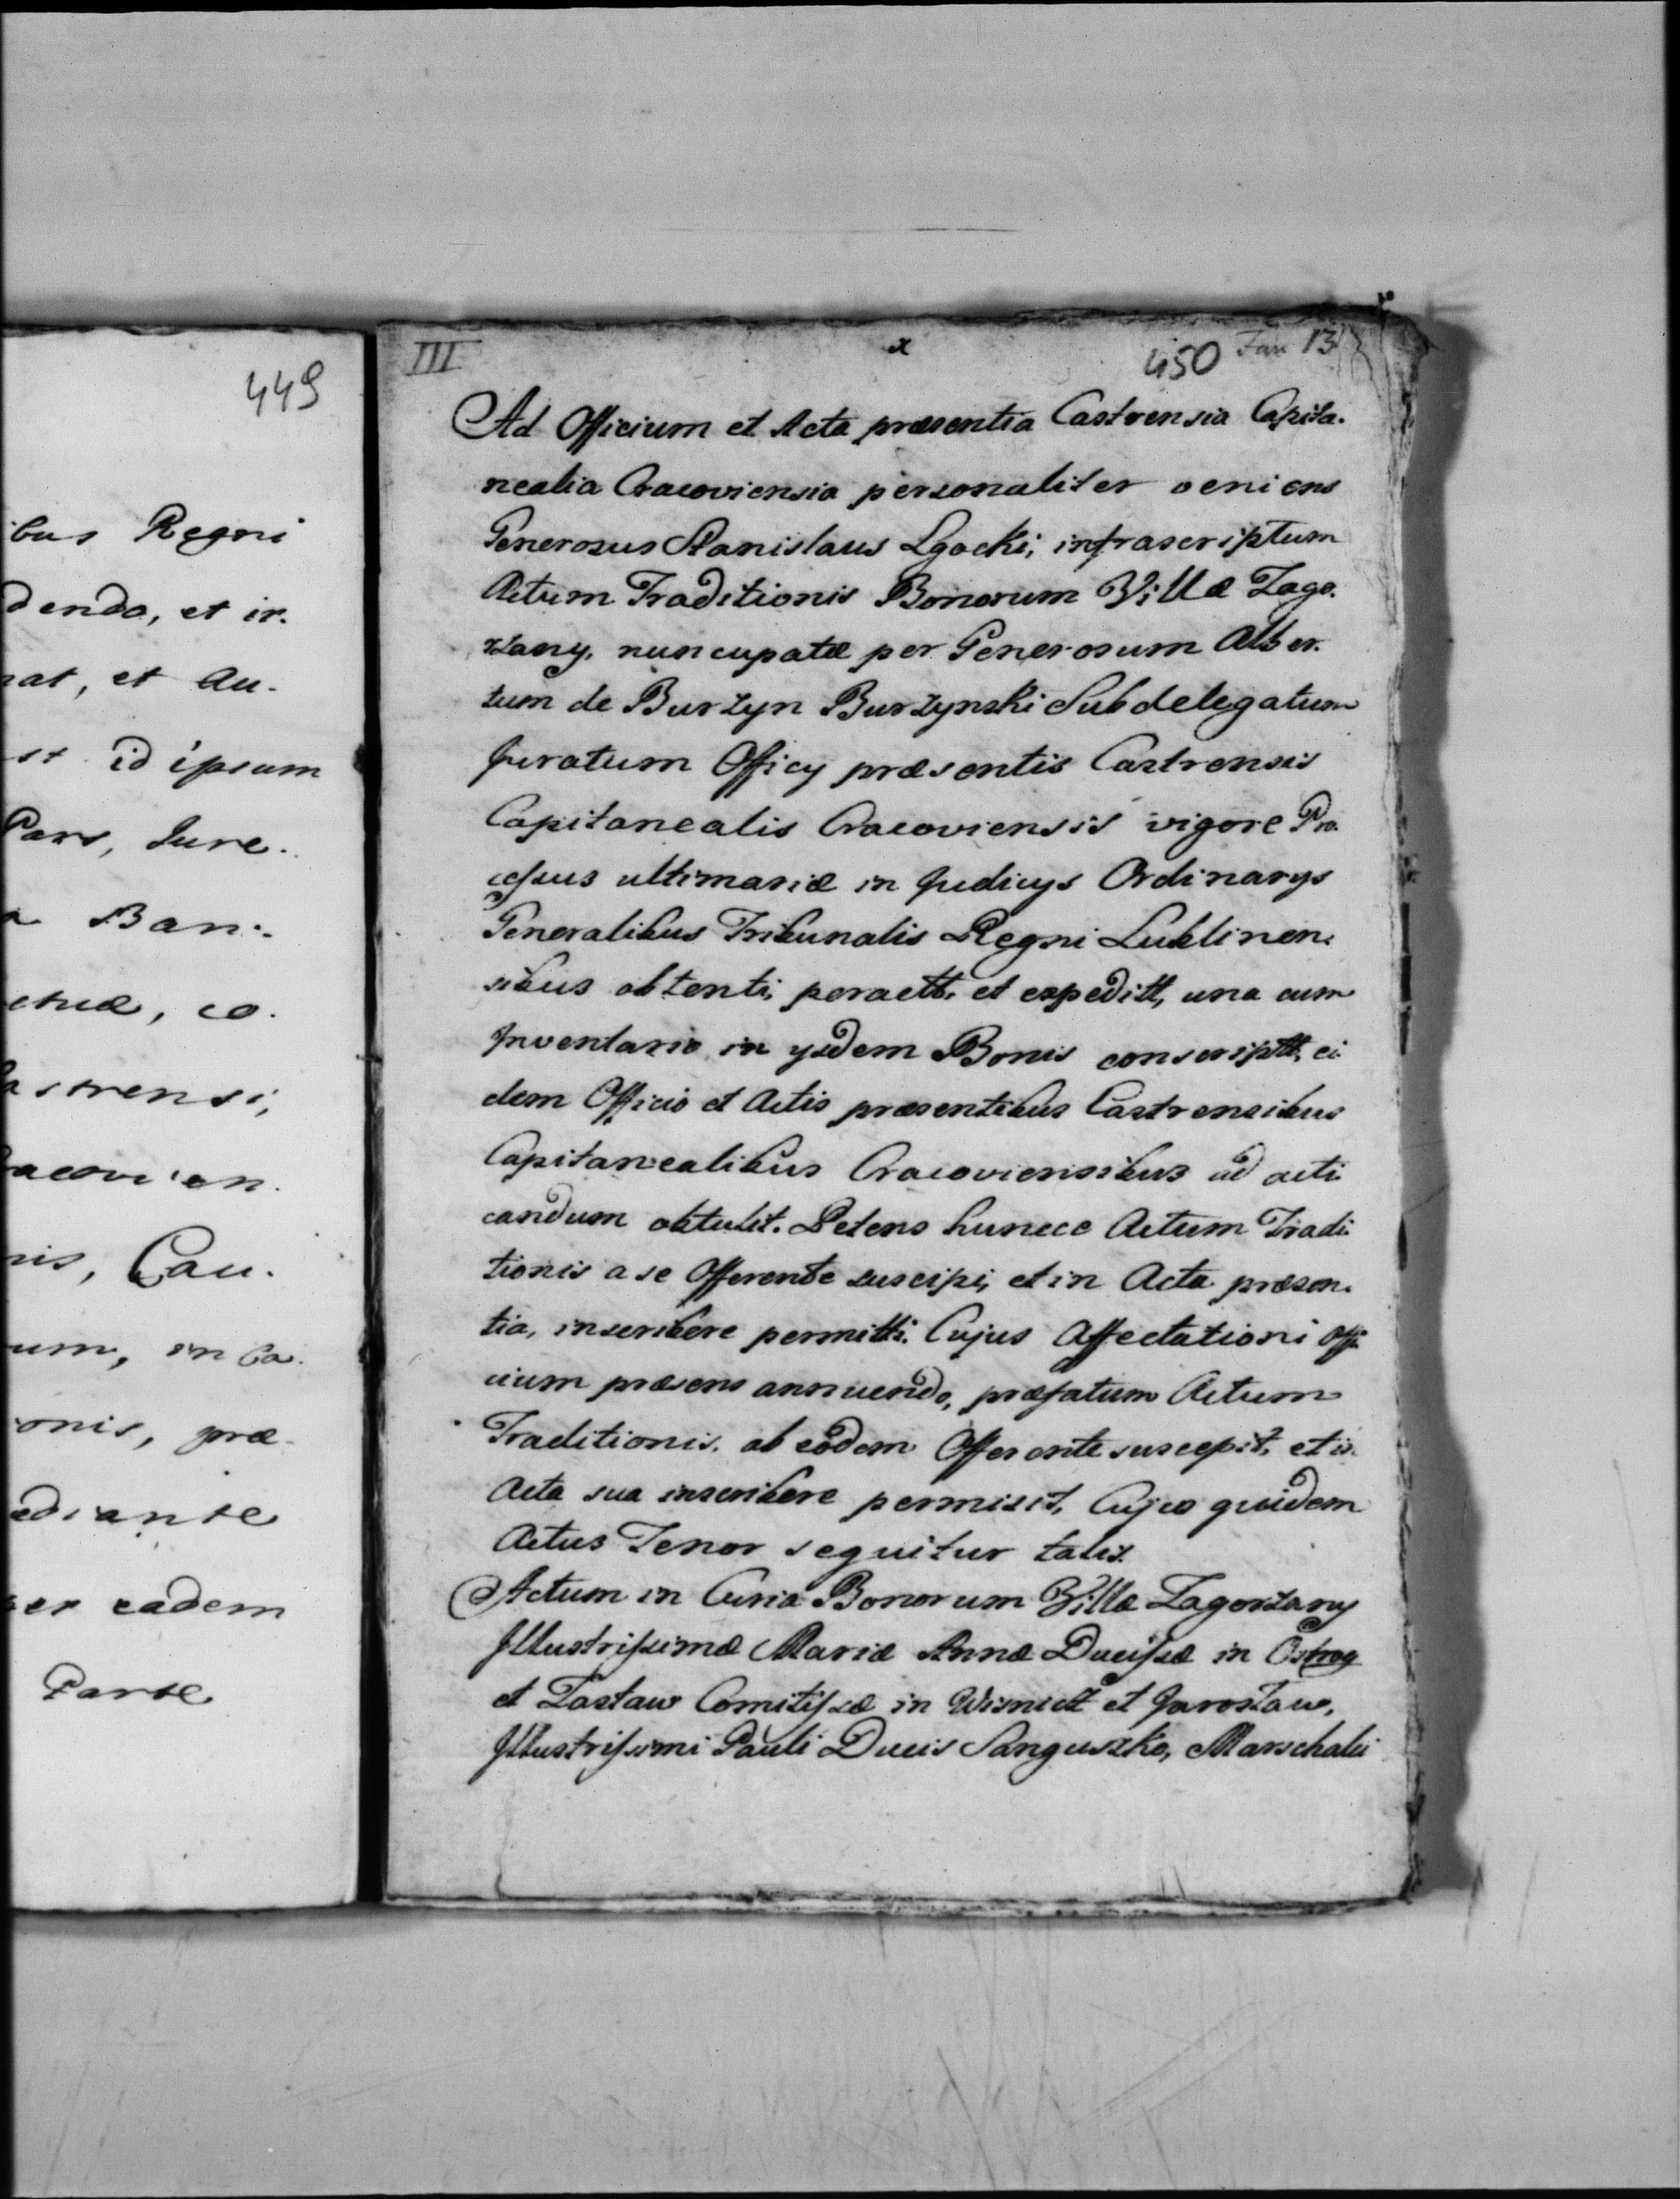 449
bus Regni
dendo, et ir.
nat, et Au.
st id ipsum
Pars, Jure.
a Ban.
chuæ, co.
astrensi,
acovien.
nis, Cau.
um, in Ca.
onis, præ
ediante
er eadem
Parte
III x 450 Fasc 13
Ad Officium et Acta præsentia Castrensia Capita.
nealia Cracoviensia personaliter veniens
Generosus Stanislaus Lgocki, infrascriptum
Actum Traditionis Bonorum Villæ Zago.
rzany, nuncupatæ per Generosum Alber.
tum de Burzyn Burzynski Subdelegatum
Juratum Officy præsentis Castrensis
Capitanealis Cracoviensis vigore Pro.
cessus ultimariæ in Judicys Ordinarys
Generalibus Tribunalis Regni Lublinen.
sibus obtenti, peractt, et expeditt, una cum
Inventario in ysdem Bonis conscriptt, ei.
dem Officio et Actis præsentibus Castrensibus
Capitanealibus Cracoviensibus ad acti.
candum obtulit. Petens huncce Actum Tradi.
tionis a se Offerente suscipi, et in Acta præsen.
tia, inscribere permitti. Cujus Affectationi Offi.
cium præsens annuendo, præfatum Actum
Traditionis, ab eodem Offerente suscepit, et in
Acta sua inscribere permisit, Cujus quidem
Actus Tenor sequitur talis.
Actum in Curia Bonorum Villæ Zagorzany
Illustrissimæ Mariæ Annæ Ducissæ in Ostrog
et Zastaw Comitissæ in Wisnicz et Jarostaw,
Illustrissimi Pauli Ducis Sanguszko, Marschalci